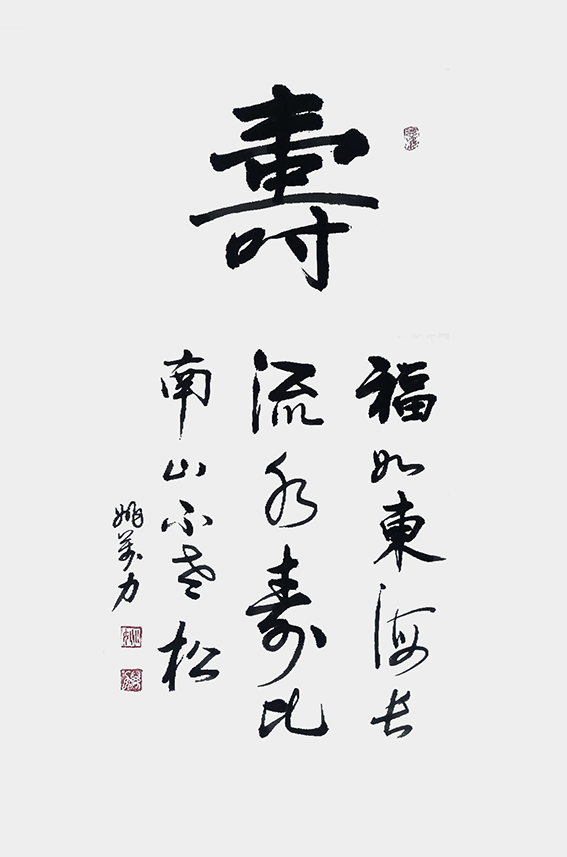 壽
福如東海长
流水寿比
南山不老松
姚万力